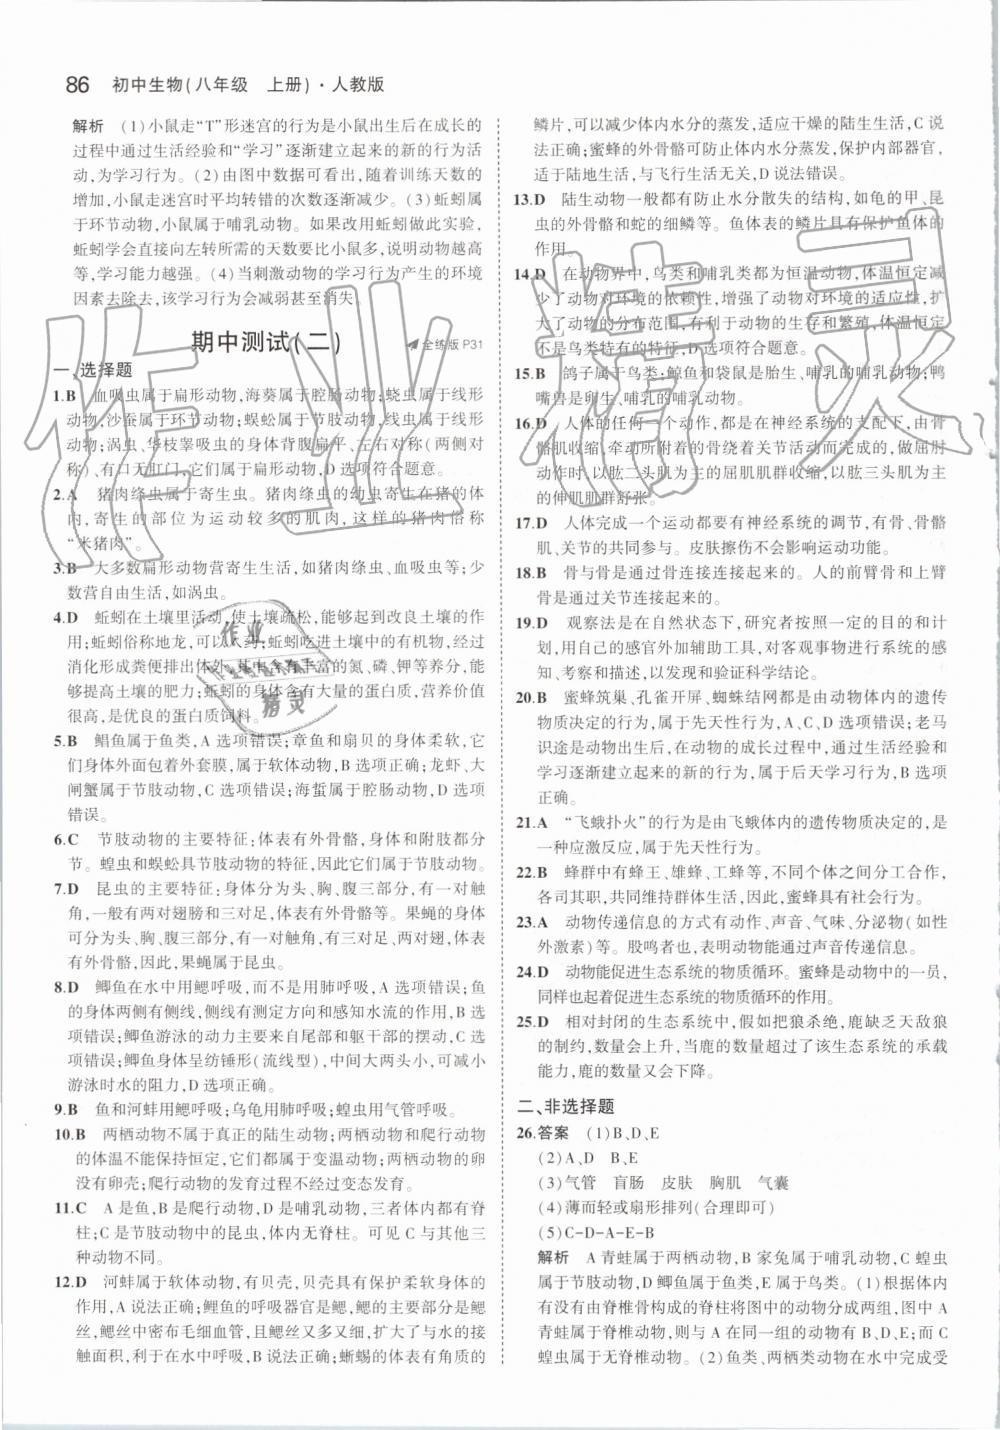 86 初中生物(八年级 上册)·人教版
解析 (1)小鼠走“T”形迷宫的行为是小鼠出生后在成长的
过程中通过生活经验和“学习”逐渐建立起来的新的行为活
动,为学习行为。(2)由图中数据可看出,随着训练天数的
增加,小鼠走迷宫时平均转错的次数逐渐减少。(3)蚯蚓属
于环节动物,小鼠属于哺乳动物。如果改用蚯蚓做此实验,
蚯蚓学会直接向左转所需的天数要比小鼠多,说明动物越高
等,学习能力越强。(4)当刺激动物的学习行为产生的环境
因素去除后,该学习行为会减弱甚至消失。
期中测试(二) 全练版P31
一、选择题
1.B 血吸虫属于扁形动物,海葵属于腔肠动物;蛲虫属于线形
动物,沙蚕属于环节动物;蜈蚣属于节肢动物,线虫属于线形
动物;涡虫、华枝睾吸虫的身体背腹扁平、左右对称(两侧对
称),有口无肛门,它们属于扁形动物,D选项符合题意。
2.A 猪肉绦虫属于寄生虫。猪肉绦虫的幼虫寄生在猪的体
内,寄生的部位为运动较多的肌肉,这样的猪肉俗称
“米猪肉”。
3.B 大多数扁形动物营寄生生活,如猪肉绦虫、血吸虫等,少
数营自由生活,如涡虫。
4.D 蚯蚓在土壤里活动,使土壤疏松,能够起到改良土壤的作
用;蚯蚓俗称地龙,可以入药;蚯蚓吃进土壤中的有机物,经过
消化形成粪便排出体外,其中含有丰富的氮、磷、钾等养分,能
够提高土壤的肥力;蚯蚓的身体含有大量的蛋白质,营养价值
很高,是优良的蛋白质饲料。
5.B 鲳鱼属于鱼类,A选项错误;章鱼和扇贝的身体柔软,它
们身体外面包着外套膜,属于软体动物,B选项正确;龙虾、大
闸蟹属于节肢动物,C选项错误;海蜇属于腔肠动物,D选项
错误。
6.C 节肢动物的主要特征:体表有外骨骼,身体和附肢都分
节。蝗虫和蜈蚣具节肢动物的特征,因此它们属于节肢动物。
7.D 昆虫的主要特征:身体分为头、胸、腹三部分,有一对触
角,一般有两对翅膀和三对足,体表有外骨骼等。果蝇的身体
可分为头、胸、腹三部分,有一对触角,有三对足、两对翅,体表
有外骨骼,因此,果蝇属于昆虫。
8.D 鲫鱼在水中用鳃呼吸,而不是用肺呼吸,A选项错误;鱼
的身体两侧有侧线,侧线有测定方向和感知水流的作用,B选
项错误;鲫鱼游泳的动力主要来自尾部和躯干部的摆动,C选
项错误;鲫鱼身体呈纺锤形(流线型),中间大两头小,可减小
游泳时水的阻力,D选项正确。
9.B 鱼和河蚌用鳃呼吸;乌龟用肺呼吸;蝗虫用气管呼吸。
10.B 两栖动物不属于真正的陆生动物;两栖动物和爬行动物
的体温不能保持恒定,它们都属于变温动物;两栖动物的卵
没有卵壳;爬行动物的发育过程不经变态发育。
11.C A是鱼,B是爬行动物,D是哺乳动物,三者体内都有脊
柱;C是节肢动物中的昆虫,体内无脊柱。可见C与其他三
种动物不同。
12.D 河蚌属于软体动物,有贝壳,贝壳具有保护柔软身体的
作用,A说法正确;鲤鱼的呼吸器官是鳃,鳃的主要部分是鳃
丝,鳃丝中密布毛细血管,且鳃丝既多又细,扩大了与水的接
触面积,利于在水中呼吸,B说法正确;蜥蜴的体表有角质的
鳞片,可以减少体内水分的蒸发,适应干燥的陆生生活,C说
法正确;蜜蜂的外骨骼可防止水分蒸发,保护内部器官,
适于陆地生活,与飞行生活无关,D说法错误。
13.D 陆生动物一般都有防止水分散失的结构,如龟的甲、昆
虫的外骨骼和蛇的细鳞等。鱼体表的鳞片具有保护鱼体的
作用。
14.D 在动物界中,鸟类和哺乳类都为恒温动物,体温恒定减
少了动物对环境的依赖性,增强了动物对环境的适应性,扩
大了动物的分布范围,有利于动物的生存和繁殖,体温恒定
不是鸟类特有的特征,D选项符合题意。
15.B 鸽子属于鸟类;鲸鱼和袋鼠是胎生、哺乳的哺乳动物;鸭
嘴兽是卵生、哺乳的哺乳动物。
16.D 人体的任何一个动作,都是在神经系统的支配下,由
骨骼肌收缩,牵动所附着的骨绕着关节活动而完成的,做屈肘
动作时,以肱二头肌为主的屈肌肌群收缩,以肱三头肌为主
的伸肌肌群舒张。
17.D 人体完成一个运动都要有神经系统的调节,有骨、骨骼
肌、关节的共同参与。皮肤擦伤不会影响运动功能。
18.B 骨与骨是通过骨连接连接起来的。人的前臂骨和上臂
骨是通过关节连接起来的。
19.D 观察法是在自然状态下,研究者按照一定的目的和计
划,用自己的感官外加辅助工具,对客观事物进行系统的感
知、考察和描述,以发现和验证科学结论。
20.B 蜜蜂筑巢、孔雀开屏、蜘蛛结网都是由动物体内的遗传
物质决定的行为,属于先天性行为,A、C、D选项错误。老马
识途是动物出生后,在动物的成长过程中,通过生活经验和
学习逐渐建立起来的新的行为,属于后天学习行为,B选项
正确。
21.A “飞蛾扑火”的行为是由飞蛾体内的遗传物质决定的,是
一种应激反应,属于先天性行为。
22.B 蜂群中有蜂王、雄蜂、工蜂等,不同个体之间分工合作,
各司其职,共同维持群体生活,因此,蜜蜂具有社会行为。
23.A 动物传递信息的方式有动作、声音、气味、分泌物(如性
外激素)等。股鸣者也,表明动物能通过声音传递信息。
24.D 动物能促进生态系统的物质循环。蜜蜂是动物中的一员,
同样也起着促进生态系统的物质循环的作用。
25.D 相对封闭的生态系统中,假如把狼杀绝,鹿缺乏天敌狼
的制约,数量会上升,当鹿的数量超过了该生态系统的承载
能力,鹿的数量又会下降。
二、非选择题
26.答案 (1)B、D、E
(2)A、D B、E
(3)气管 盲肠 皮肤 胸肌 气囊
(4)薄而轻或扇形排列(合理即可)
(5)C-D-A-E-B
解析 A青蛙属于两栖动物,B家兔属于哺乳动物,C蝗虫
属于节肢动物,D鲫鱼属于鱼类,E属于鸟类。(1)根据体内
有没有由脊椎骨构成的脊柱将图中的动物分成两组,图中A
青蛙属于脊椎动物,则与A在同一组的动物有B、D、E;而C
蝗虫属于无脊椎动物。(2)鱼类、两栖类动物在水中完成受
作业精灵
作业
精灵